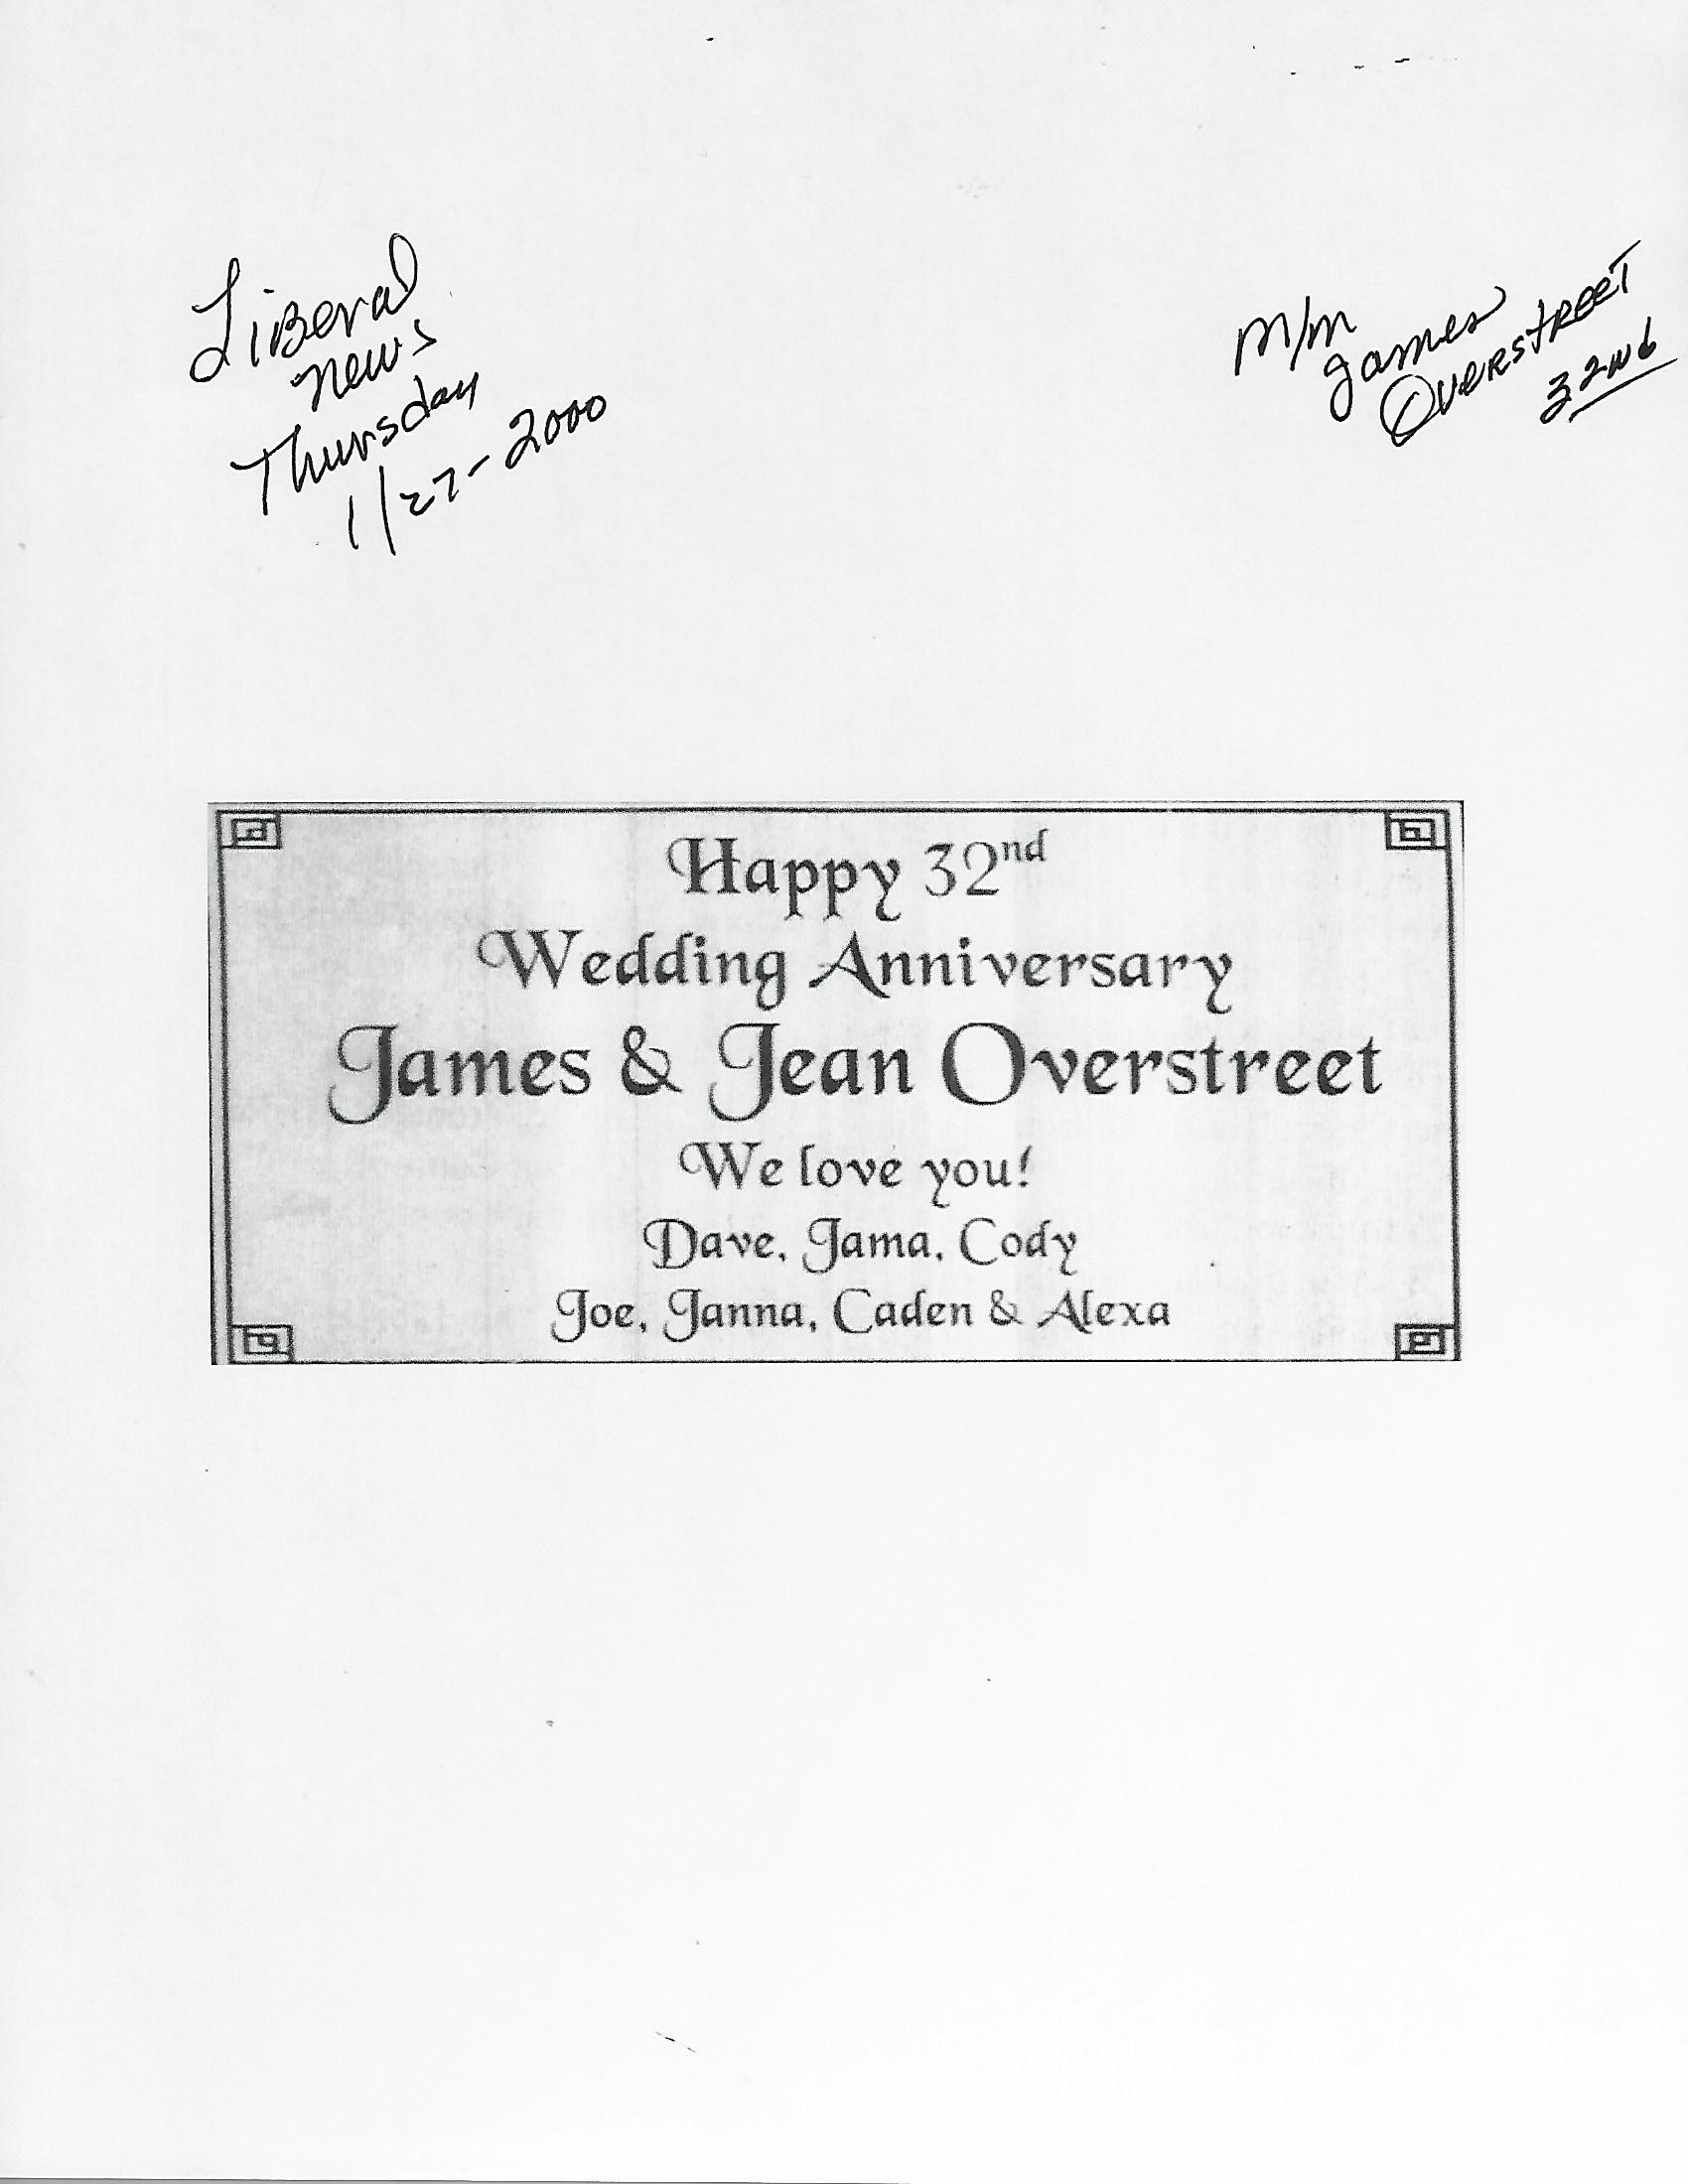 Liberal
News
Thursday
1/27-2000
M/M
James
Overstreet
32nd
Happy 32nd
Wedding Anniversary
James & Jean Overstreet
We love you!
Dave, Jama, Cody
Joe, Janna, Caden & Alexa